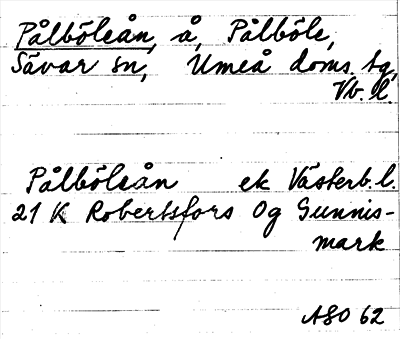 Pålböleån, å, Pålböle,
Sävar sn, Umeå doms. tg,
Vb. l.
Pålböleån ek Västerb. l.
21 K Robertsfors Og Gunnis-
mark
ASO 62